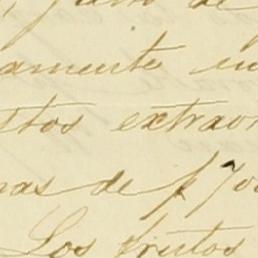 de
amente en
stos extraor
nas de $700
Los frutos